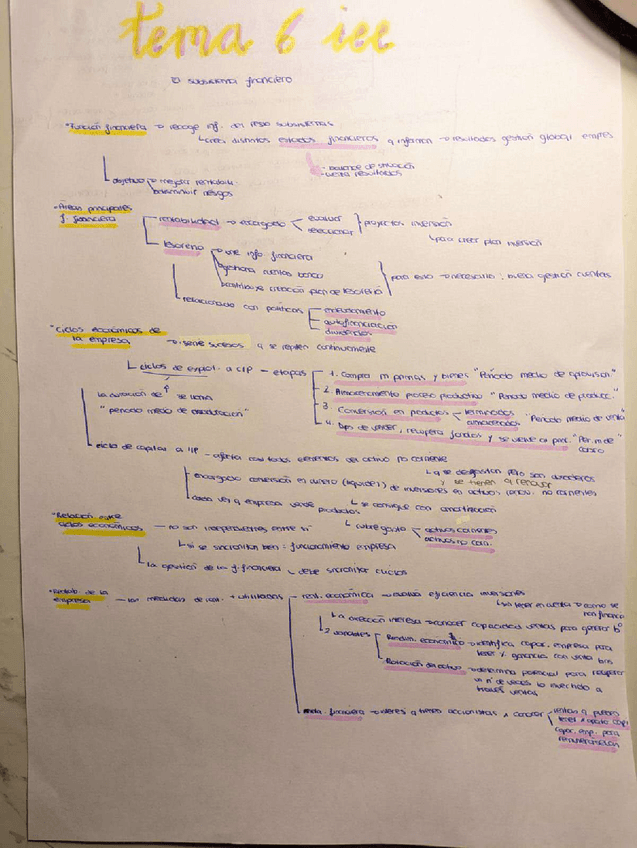 tema 6 iee
El subsistema financiero
Función financiera → recoge inf. del resto subsistemas
crea distintos estados financieros q informan → resultados gestión global empres
- balance de situación
- cuenta resultados
objetivo → mejorar rentabili.
disminuir riesgos
Áreas principales
f. financiera
rentabilidad → encargado evaluar seleccionar } proyectos inversión
para crear plan inversión
tesorería → info financiera
gestiona cuentas banco
creación plan de tesorería
para esto → necesario: buena gestión cuentas
relacionado con políticas endeudamiento
autofinanciación
dividendos
Ciclos económicos de
la empresa → serie sucesos q se repiten continuamente
ciclos de explot. a C/P - etapas
1. Compra m primas y bienes "Período medio de aprovision"
2. Almacenamiento proceso productivo "Período medio de producc."
3. Conversión en productos terminados almacenados "Período medio de venta"
4. Dps de vender, recupera fondos y se vuelve al proc. "Per. m de cobro"
la duración de se llama
"período medio de maduración"
ciclo de capital a l/P - afecta con todos elementos del activo no corriente
q se desgastan pero son duraderos
y se tienen q renovar
encargado conversión en dinero (liquidez) de inversiones en activos no corrientes
cada vez q empresa vende productos → se consigue con amortización
Relación entre
ciclos económicos - no son independientes entre sí
cubre gasto activos corrientes
activos no corr.
si se sincronizan bien: funcionamiento empresa
la gestión de la f. financiera debe sincronizar ciclos
Rentab. de la
empresa - las medidas de + utilizadas
rent. económica → evalúa eficiencia inversiones
sin tener en cuenta → cómo se han financia
dirección interesa → conocer capacidad ventas para generar bº
2 variables
Rendim. económico → identifica capac. empresa para
tener % ganancia con venta bns
Rotación del activo → determina potencial para recuperar
un nº de veces lo invertido a
través ventas
renta. financiera → interés a accionistas x conocer
ventas q pueden
tener x aporta. cap.
capac. emp. para
remuneración